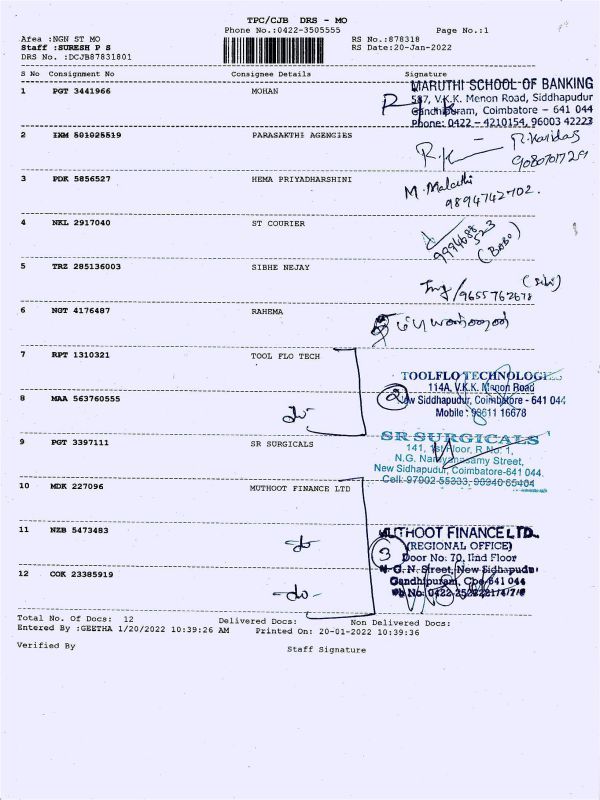 TPC/CJB DRS - MO
Phone No.:0422-3505555 Page No.:1
Area :NGN ST MO RS No.:878318
Staff :SURESH P S RS Date:20-Jan-2022
DRS No. :DCJB87831801
S No Consignment No Consignee Details Signature
1 PGT 3441966 MOHAN
MARUTHI SCHOOL OF BANKING
587, V.K.K. Menon Road, Siddhapudur
Gandhipuram, Coimbatore - 641 044
Phone: 0422 - 4210154, 96003 42223
2 IXM 501025519 PARASAKTHI AGENCIES
R.K
R.Haridas
9080701729
3 PDK 5856527 HEMA PRIYADHARSHINI
M. Malathi
9894742702.
4 NKL 2917040 ST COURIER
9994688523
(Babo)
5 TRZ 285136003 SIBHE NEJAY
(Sibi)
/9655762678
6 NGT 4176487 RAHEMA
7 RPT 1310321 TOOL FLO TECH
TOOLFLO TECHNOLOGIES
114A, V.K.K. Menon Road
8 MAA 563760555
2 New Siddhapudur, Coimbatore - 641 044
Mobile : 98611 16678
9 PGT 3397111 SR SURGICALS
SR SURGICALS
141, 1st Floor, R.No. 1,
N.G. Narayanasamy Street,
New Sidhapudur, Coimbatore-641 044.
Cell: 97902 55333, 90940 65404
10 MDK 227096 MUTHOOT FINANCE LTD
11 NZB 5473483
MUTHOOT FINANCE LTD.
3 (REGIONAL OFFICE)
Door No: 70, IInd Floor
12 COK 23385919
N.G.N. Street, New Sidhapudur
Gandhipuram, Cbe-641 044
Total No. Of Docs: 12 Delivered Docs: Non Delivered Docs:
Entered By :GEETHA 1/20/2022 10:39:26 AM Printed On: 20-01-2022 10:39:36
Verified By Staff Signature